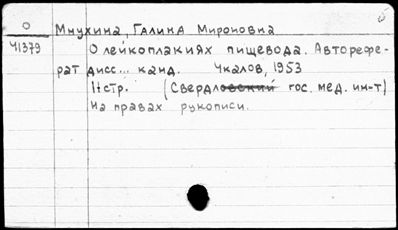 О
Мнухина, Галина Мироновна
41379
О лейкоплакиях пищевода. Авторефе-
рат дисс... канд. Чкалов, 1953
11 стр. (Свердловский гос. мед. ин-т)
На правах рукописи.